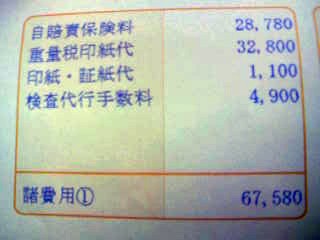 自賠責保険料 28,780
重量税印紙代 32,800
印紙・証紙代 1,100
検査代行手数料 4,900
諸費用① 67,580